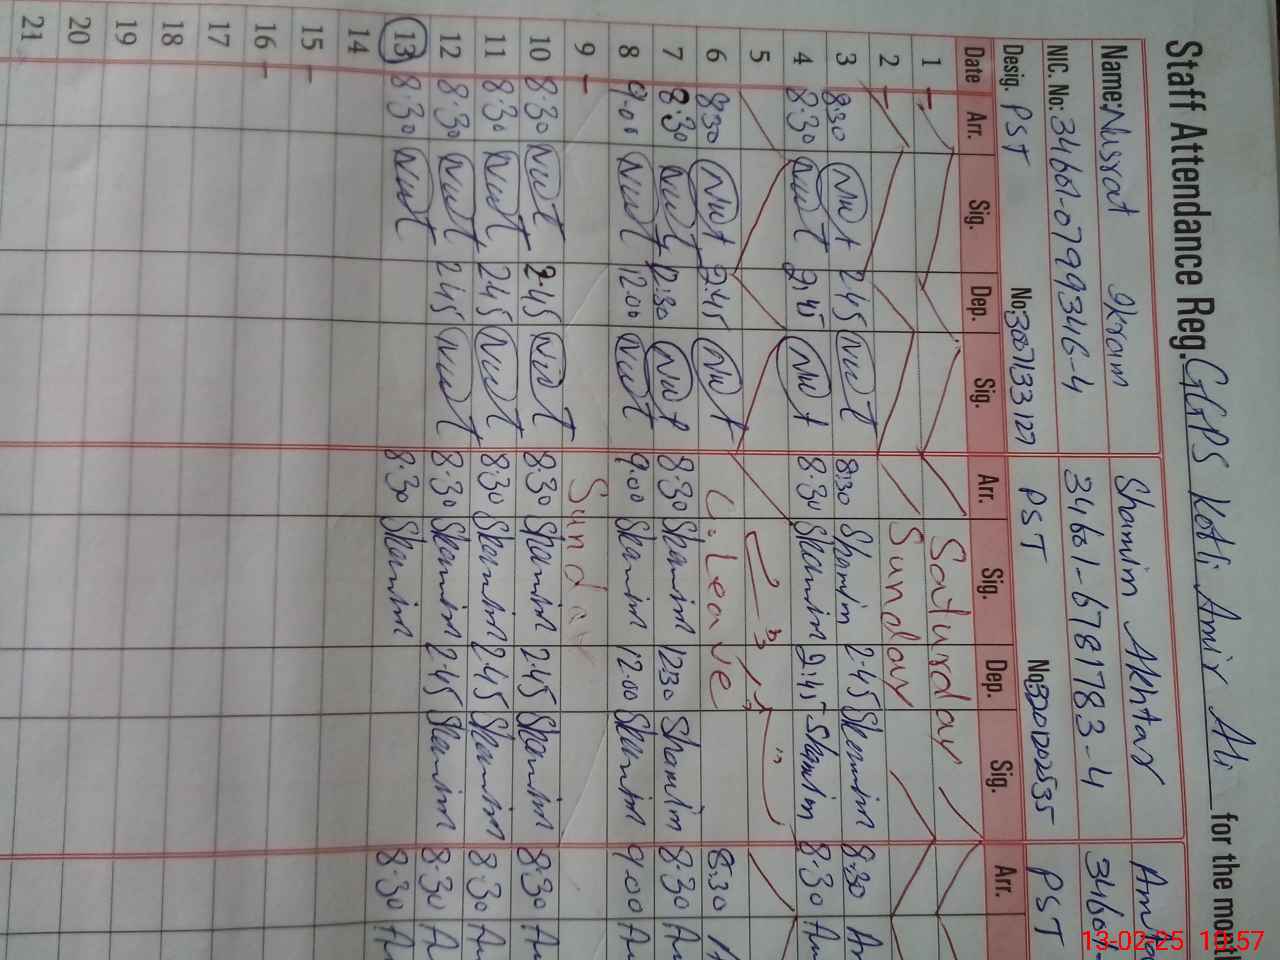 Staff Attendance Reg. GGPS Kotli Amir Ali for the mont
Name: Nusrat Ikram Shamim Akhtar
NIC. No: 34601-0799346-4 34601-6781783-4 34601-
Desig. PST No: PST No: PST
Date Arr. Sig. Dep. Sig. Arr. Sig. Dep. Sig. Arr.
1 Saturday
2 Sunday
3 8:30 2:45 8:30 Shamim 2:45 Shamim 8:30
4 8:30 2:45 8:30 Shamim 2:45 Shamim 8:30
5
6 8:30 2:45 C. Leave 8:30
7 8:30 12:30 8:30 Shamim 12:30 Shamim 8:30
8 9:00 12:00 9:00 Shamim 12:00 Shamim 9:00
9 Sunday
10 8:30 2:45 8:30 Shamim 2:45 Shamim 8:30
11 8:30 2:45 8:30 Shamim 2:45 Shamim 8:30
12 8:30 2:45 8:30 Shamim 2:45 Shamim 8:30
13 8:30 8:30 Shamim 8:30
14
15
16
17
18
19
20
21
13-02-25 10:57